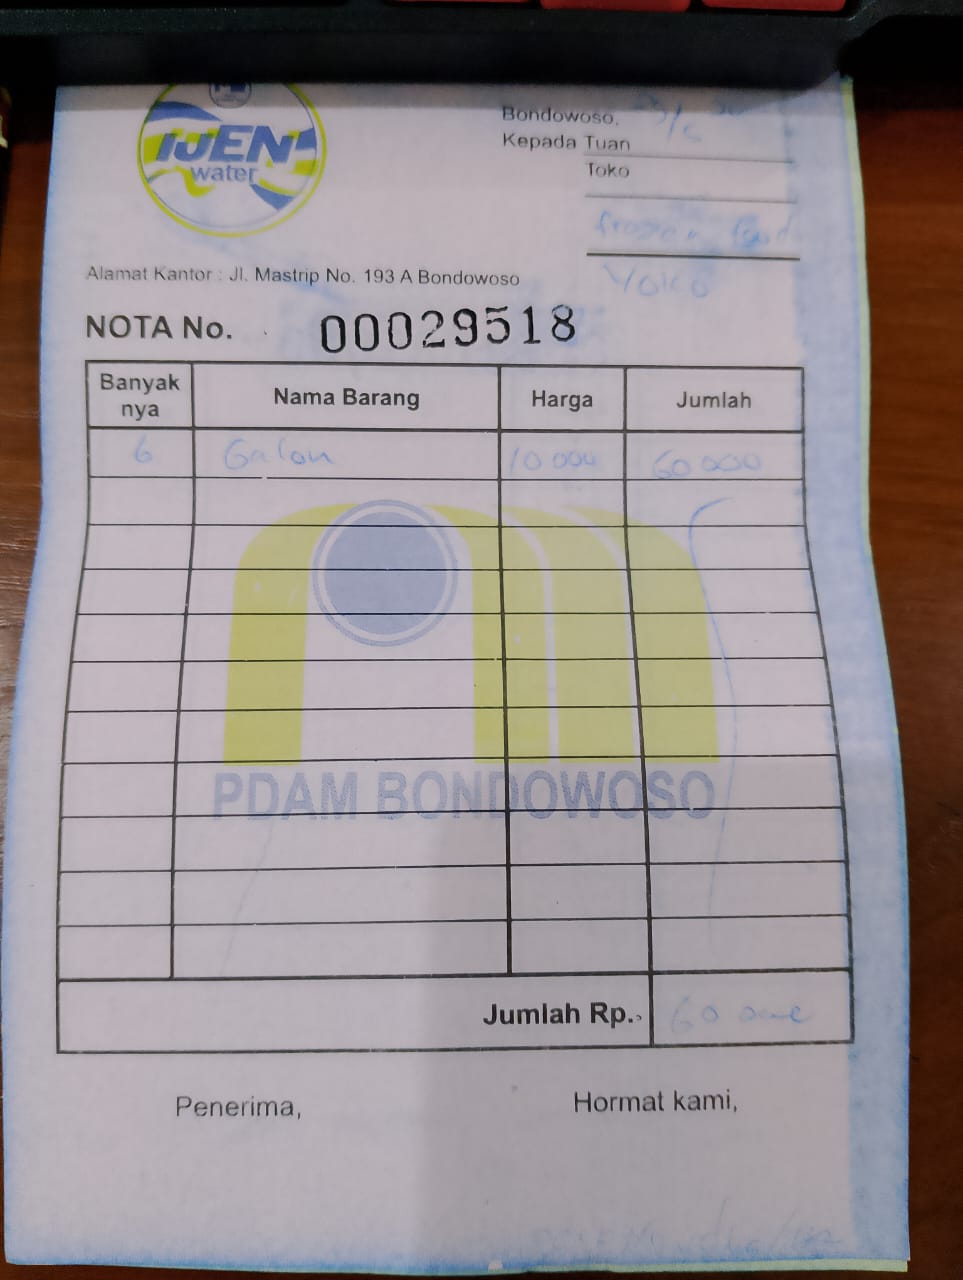 IJEN
water
Bondowoso,
Kepada Tuan
Toko
frozen food
Yoko
Alamat Kantor : Jl. Mastrip No. 193 A Bondowoso
NOTA No. 00029518
Banyak nya Nama Barang Harga Jumlah
6 Galon 10 000 60 000
PDAM BONDOWOSO
Jumlah Rp. 60 000
Penerima, Hormat kami,